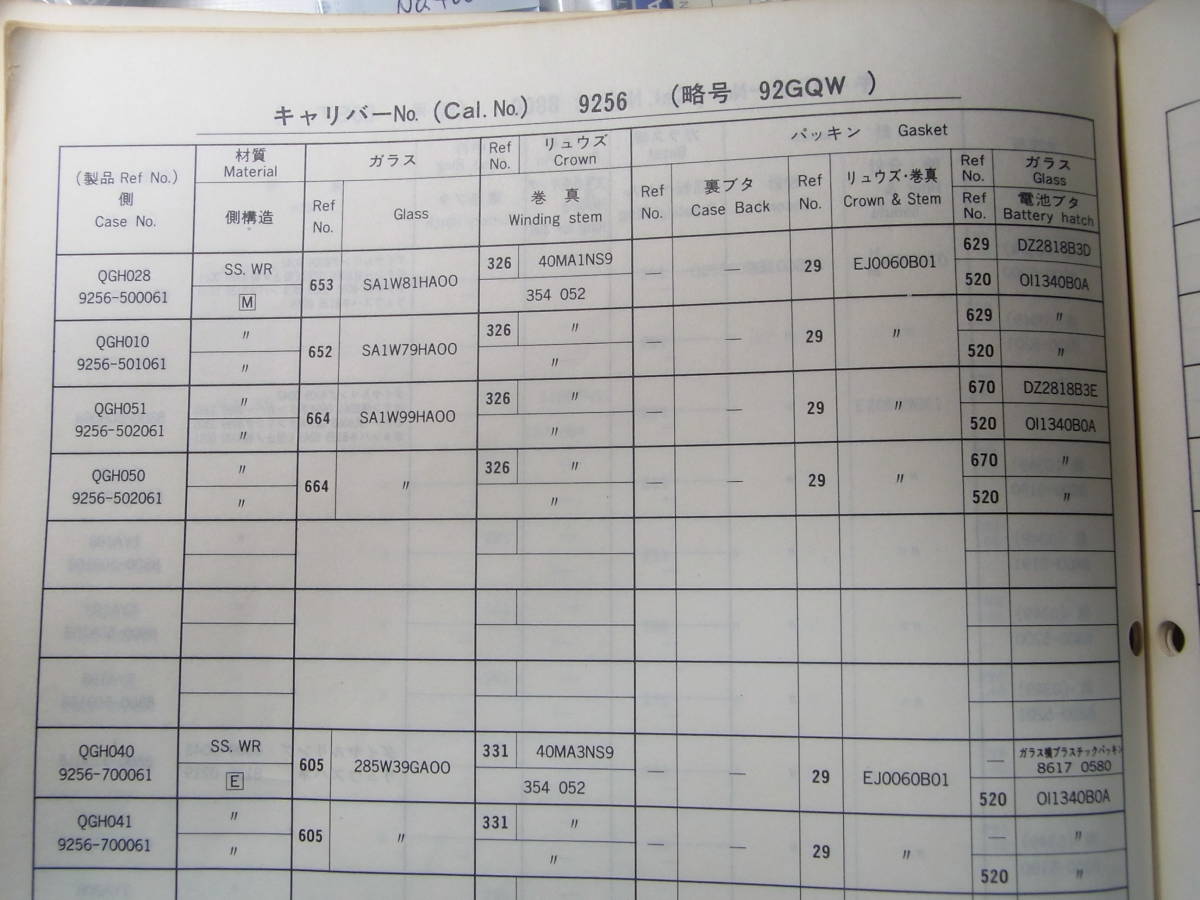 キャリバーNo. (Cal. No.) 9256 (略号 92GQW )
(製品 Ref No.) 側 Case No.
材質 Material
側構造
ガラス
Ref No.
Glass
Ref No.
リュウズ Crown
巻真 Winding stem
パッキン Gasket
Ref No.
裏ブタ Case Back
Ref No.
リュウズ・巻真 Crown & Stem
Ref No.
ガラス Glass
Ref No.
電池ブタ Battery hatch
QGH028 SS. WR 653 SA1W81HA00 326 40MA1NS9 — — 29 EJ0060B01 629 DZ2818B3D
9256-500061 M 354 052 520 OI1340B0A
QGH010 〃 652 SA1W79HA00 326 〃 — — 29 〃 629 〃
9256-501061 〃 〃 520 〃
QGH051 〃 664 SA1W99HA00 326 〃 — — 29 〃 670 DZ2818B3E
9256-502061 〃 〃 520 OI1340B0A
QGH050 〃 664 〃 326 〃 — — 29 〃 670 〃
9256-502061 〃 〃 520 〃
QGH040 SS. WR 605 285W39GA00 331 40MA3NS9 — — 29 EJ0060B01 — ガラス横プラスチックパッキン 8617 0580
9256-700061 E 354 052 520 OI1340B0A
QGH041 〃 605 〃 331 〃 — — 29 〃 — 〃
9256-700061 〃 〃 520 〃